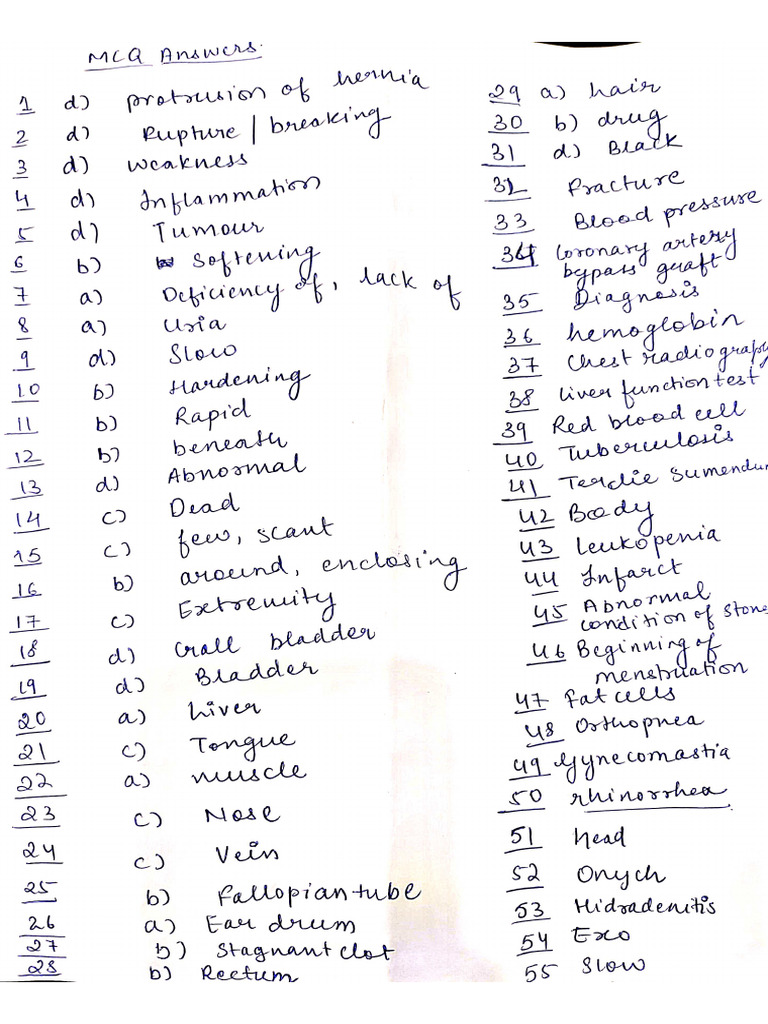 MCQ Answers.
1 d) protrusion of hernia
2 d) Rupture / breaking
3 d) weakness
4 d) Inflammation
5 d) Tumour
6 b) Softening
7 a) Deficiency of, lack of
8 a) Uria
9 d) Slow
10 b) Hardening
11 b) Rapid
12 b) beneath
13 d) Abnormal
14 c) Dead
15 c) few, scant
16 b) around, enclosing
17 c) Extremity
18 d) Grall bladder
19 d) Bladder
20 a) Liver
21 c) Tongue
22 a) muscle
23 c) Nose
24 c) Vein
25 b) Fallopian tube
26 a) Ear drum
27 b) Stagnant clot
28 b) Rectum
29 a) hair
30 b) drug
31 d) Black
32 Fracture
33 Blood pressure
34 Coronary artery
bypass graft
35 Diagnosis
36 hemoglobin
37 Chest radiography
38 Liver function test
39 Red blood cell
40 Tuberculosis
41 Terdie Sumendum
42 Body
43 Leukopenia
44 Infarct
45 Abnormal
condition of stone
46 Beginning of
menstruation
47 Fat cells
48 Orthopnea
49 Gynecomastia
50 rhinorrhea
51 head
52 Onych
53 Hidradenitis
54 Exo
55 Slow